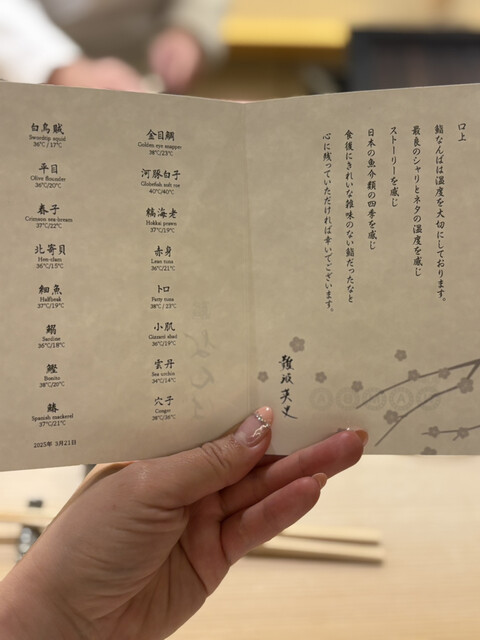 白烏賊
Swordtip squid
36℃/17℃
平目
Olive flounder
36℃/20℃
春子
Crimson sea-bream
37℃/22℃
北寄貝
Hen-clam
36℃/15℃
細魚
Halfbeak
37℃/19℃
鰯
Sardine
36℃/18℃
鰹
Bonito
38℃/20℃
鰆
Spanish mackerel
37℃/21℃
2025年 3月21日
金目鯛
Golden eye snapper
38℃/23℃
河豚白子
Globefish soft roe
40℃/40℃
縞海老
Hokkai prawn
37℃/19℃
赤身
Lean tuna
36℃/21℃
トロ
Fatty tuna
38℃/23℃
小肌
Gizzard shad
36℃/19℃
雲丹
Sea urchin
34℃/14℃
穴子
Conger
38℃/36℃
口上
鮨なんばは温度を大切にしております。
最良のシャリとネタの温度を感じ
ストーリーを感じ
日本の魚介類の四季を感じ
食後にきれいな雑味のない鮨だったなと
心に残っていただければ幸いでございます。
難波英史